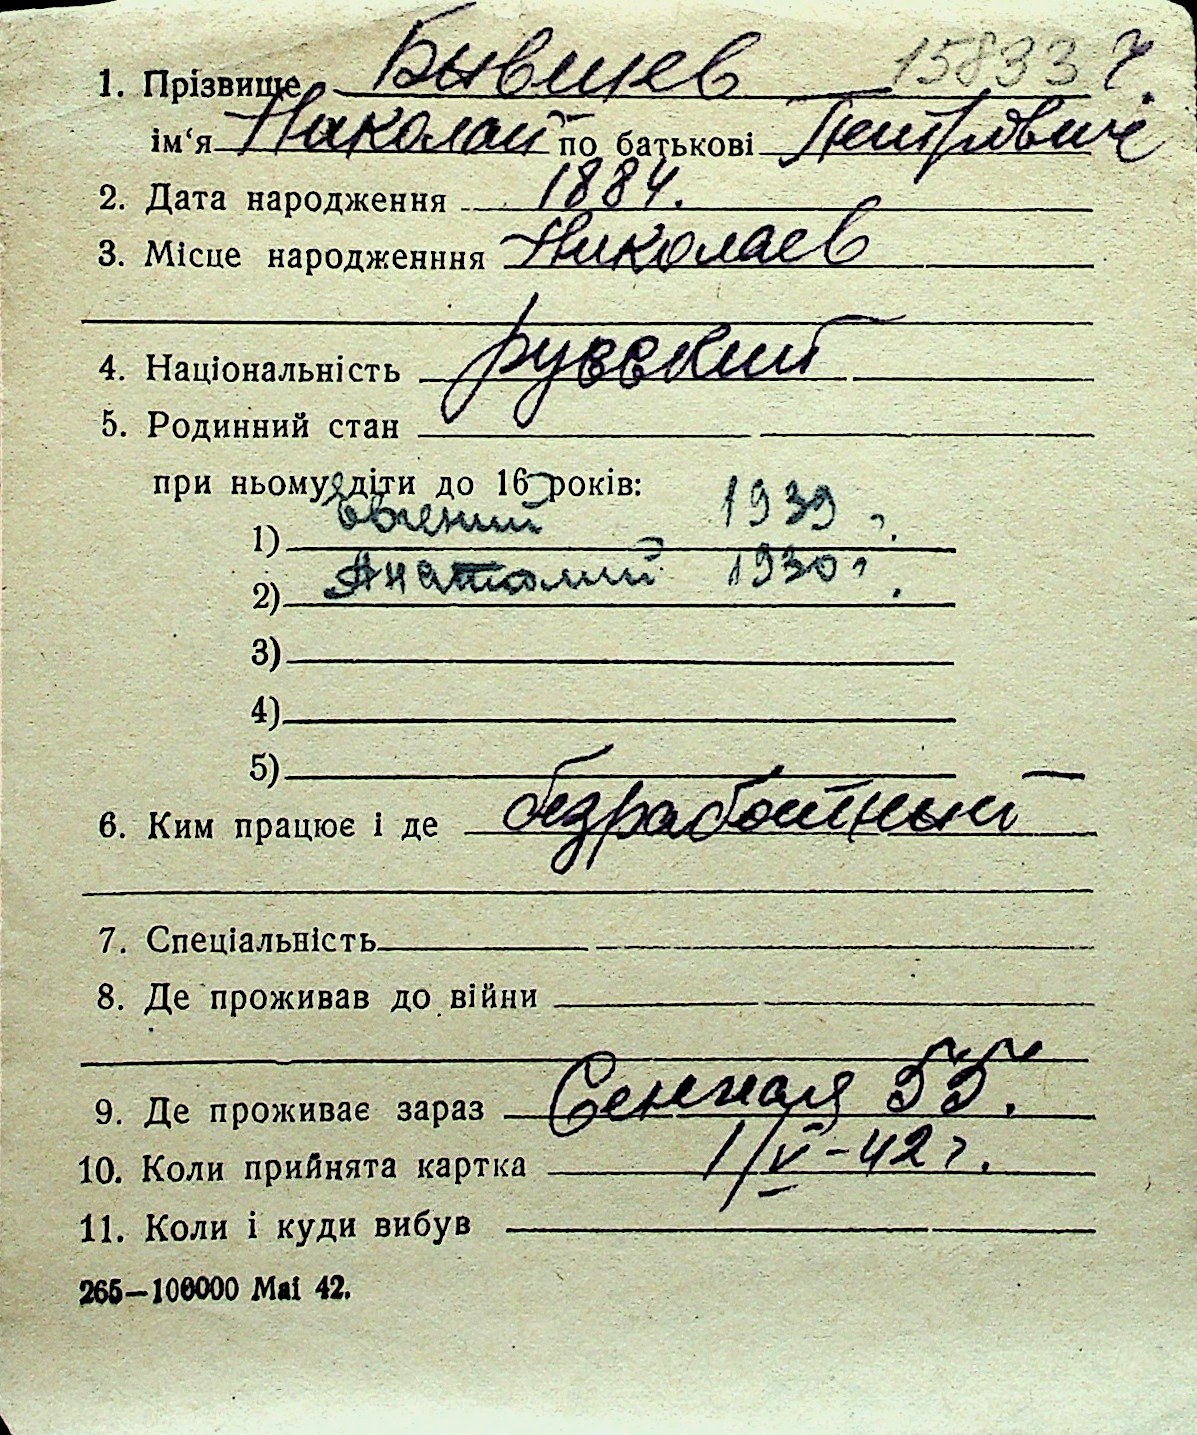 1. Прізвище Бывшев 15833
ім‘я Николай по батькові Петрович
2. Дата народження 1884.
3. Місце народженння Николаев
4. Національність русский
5. Родинний стан
при ньому діти до 16 років:
1) Евгений 1939 г.
2) Анатолий 1930 г.
3)
4)
5)
6. Ким працює і де безработный
7. Спеціальність
8. Де проживав до війни
9. Де проживає зараз Сенная 55.
10. Коли прийнята картка 1/V-42 г.
11. Коли і куди вибув
265—100000 Mai 42.